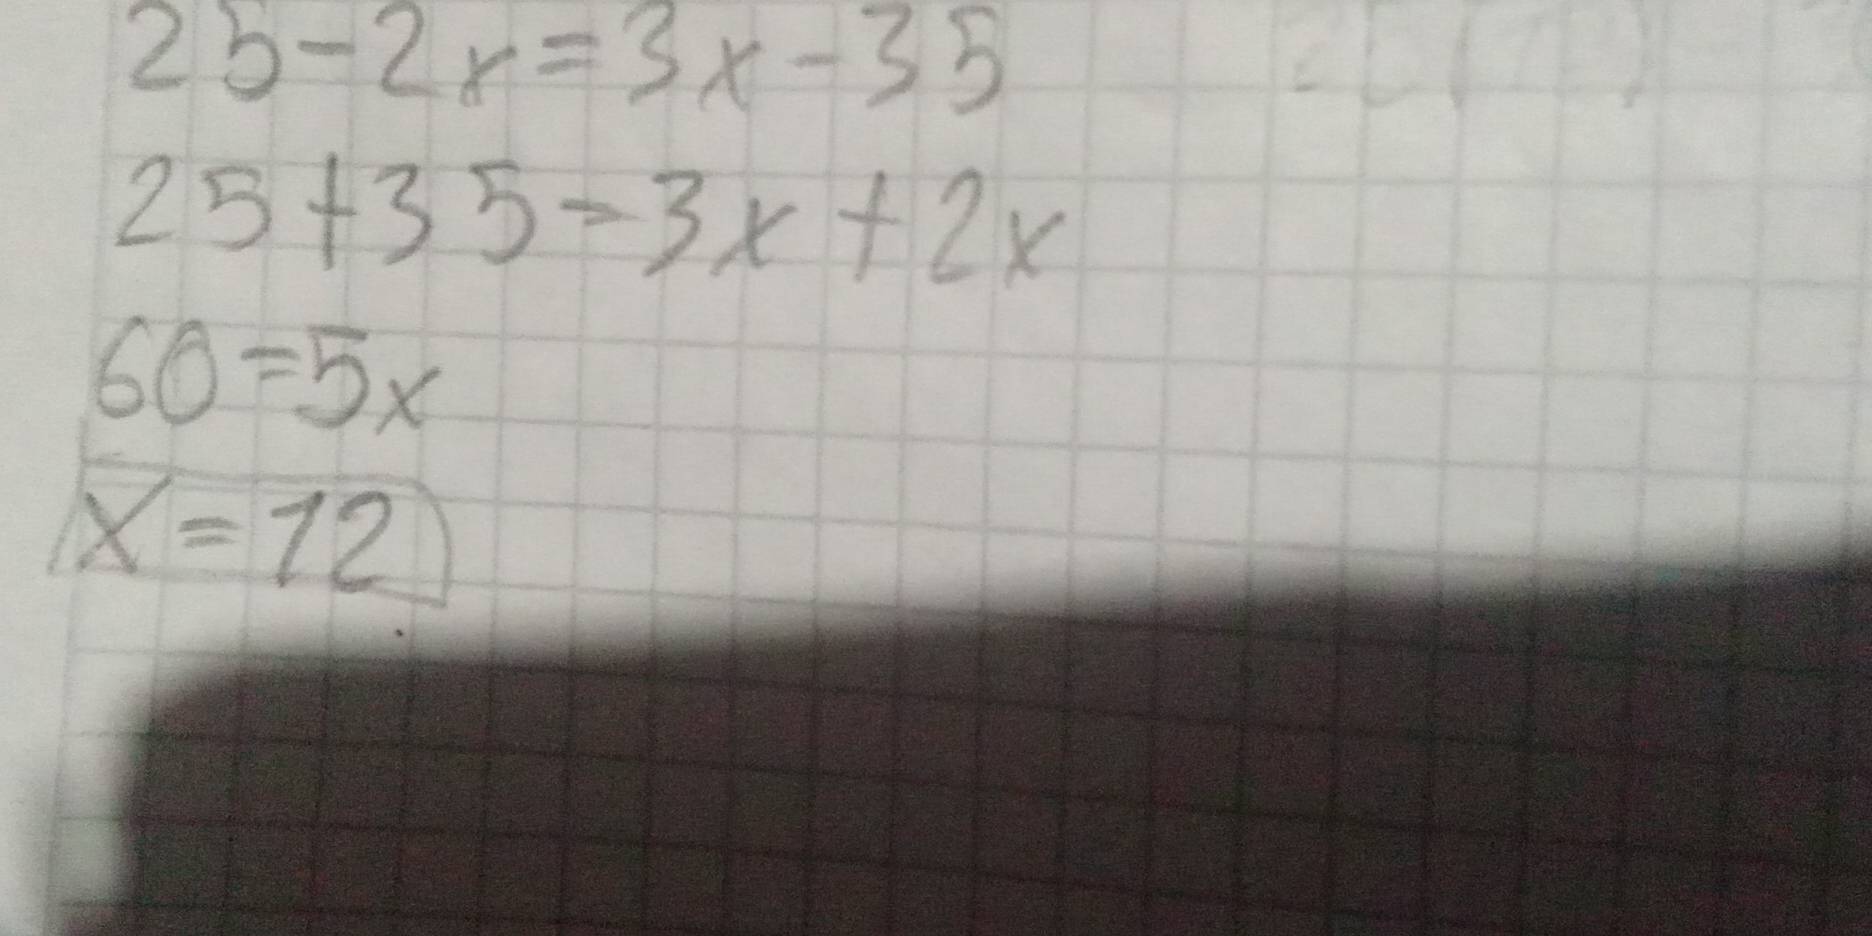 25-2x=3x-35
25+35=3x+2x
60=5x
x=12